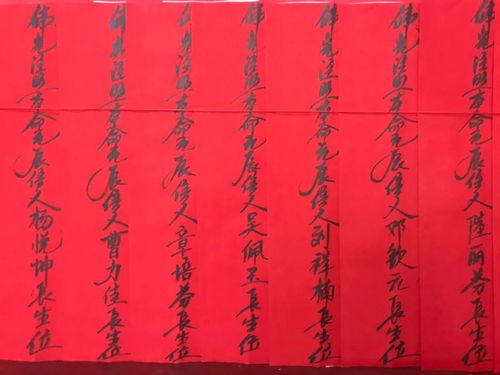 佛光注照本命元辰信人陸丽芬長生位
佛光注照本命元辰信人邓钦元長生位
佛光注照本命元辰信人刘祥楠長生位
佛光注照本命元辰信人吴佩玉長生位
佛光注照本命元辰信人章培芬長生位
佛光注照本命元辰信人曹力佳長生位
佛光注照本命元辰信人杨悦坤長生位